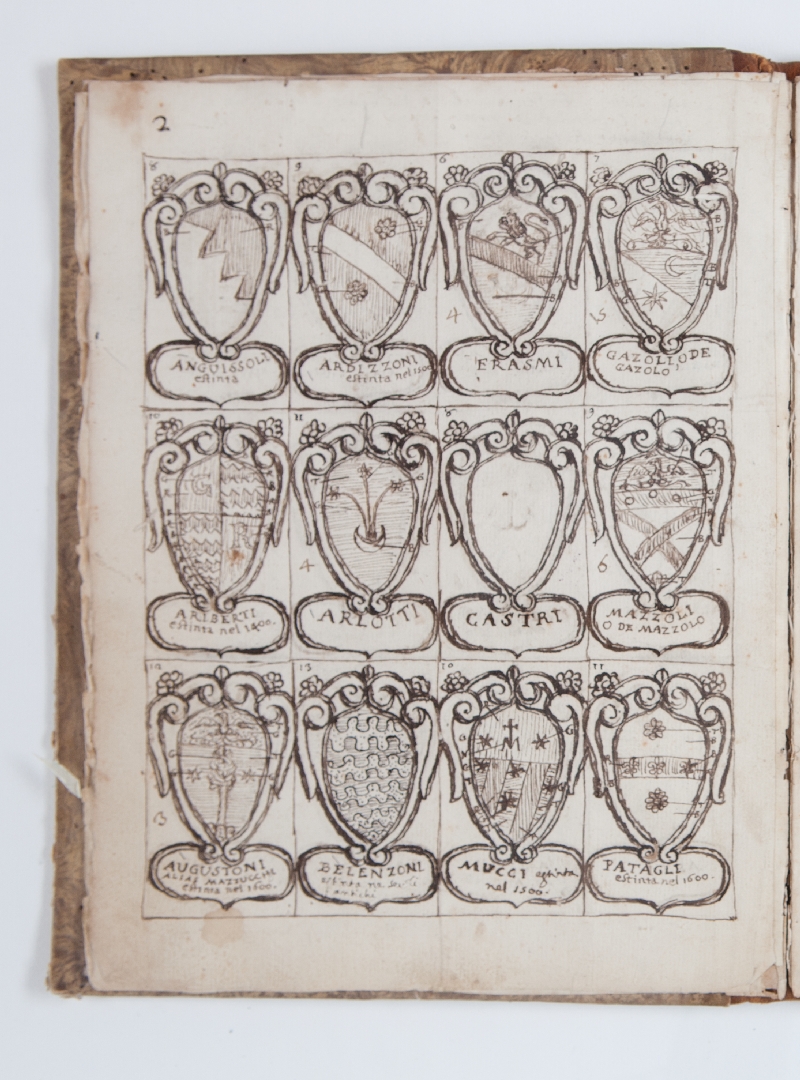 2
8 9 6 7
4 5
ANGUISSOLI
estinta
ARDIZZONI
estinta nel 1500
ERASMI
GAZOLI O DE
GAZOLO
10 11 8 9
G
4 6
ARIBERTI
estinta nel 1400.
ARLOTTI
CASTRI
MAZZOLI
O DE MAZZOLO
12 13 10 11
M
3
AUGUSTONI
ALIAS MAZZUCCHI
estinta nel 1600.
BELENZONI
estinta
antichi
MUCCI estinta
nel 1500.
PATAGLI
estinta nel 1600.